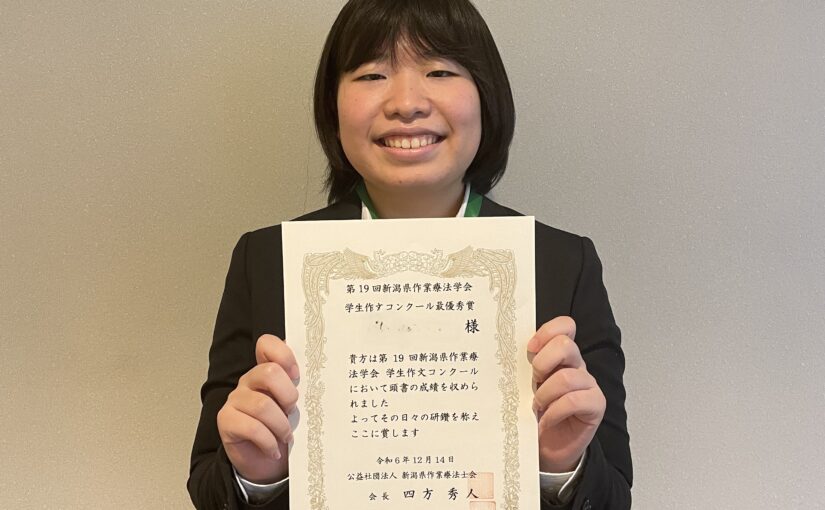 第19回新潟県作業療法学会
学生作文コンクール最優秀賞
様
貴方は第19回新潟県作業療
法学会 学生作文コンクール
において頭書の成績を収めら
れました
よってその日々の研鑽を称え
ここに賞します
令和6年12月14日
公益社団法人 新潟県作業療法士会
会長 四方 秀人